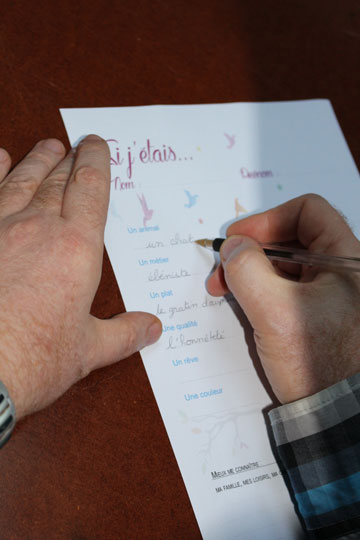 Si j'étais...
Nom Prénom
Un animal
un chat
Un métier
ébéniste
Un plat
le gratin
Une qualité
l'honnêteté
Un rêve
Une couleur
MIEUX ME CONNAÎTRE
MA FAMILLE, MES LOISIRS, MA